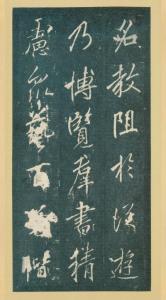 名教阻於遊
乃博覽羣書精
慮藝百階